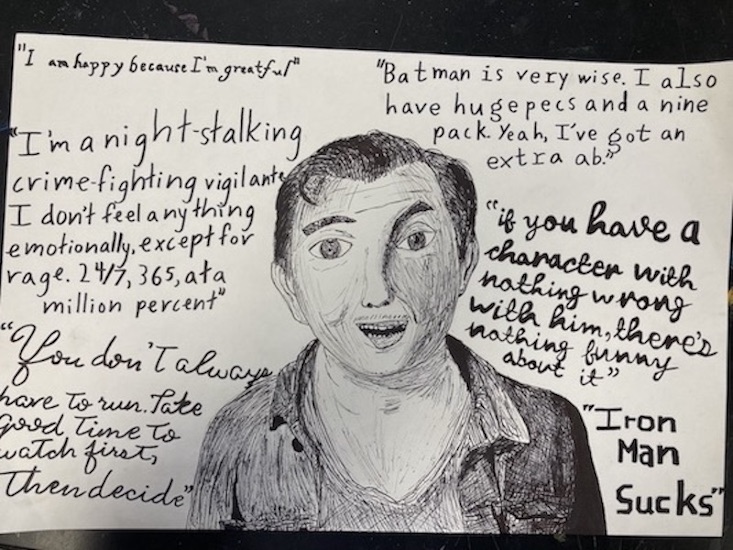 "I am happy because I'm greatful"
"Batman is very wise. I also
have huge pecs and a nine
pack. Yeah, I've got an
extra ab."
"I'm a night-stalking
crime-fighting vigilante
I don't feel anything
emotionally, except for
rage. 24/7, 365, at a
million percent"
"if you have a
character with
nothing wrong
with him, there's
nothing funny
about it"
"You don't always
have to run. Take
good time to
watch first,
then decide"
"Iron
Man
Sucks"